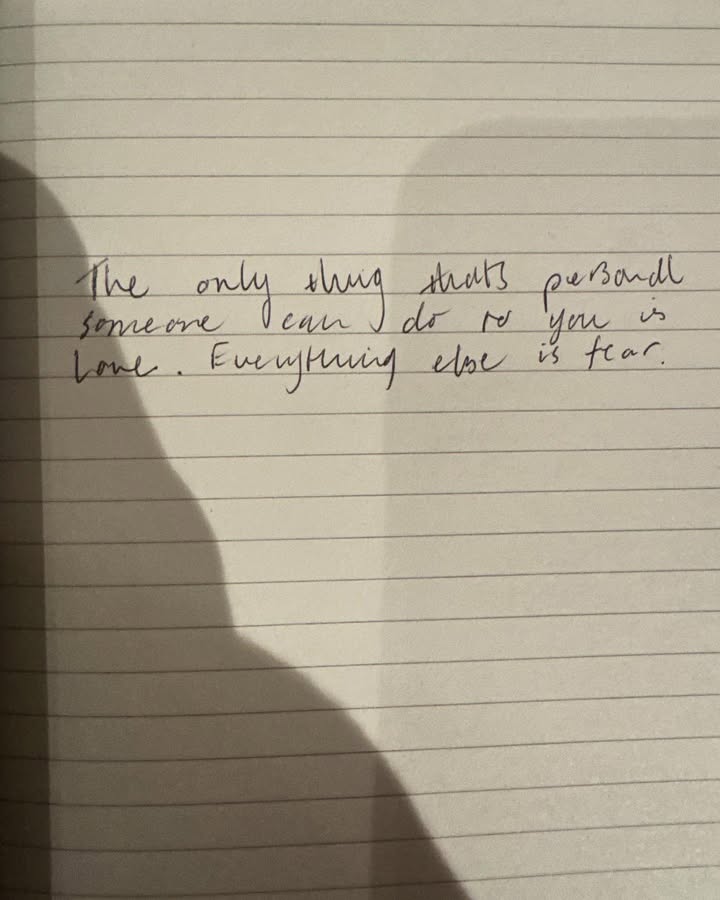 The only thing thats personal
someone can do to you is
Love. Everything else is fear.